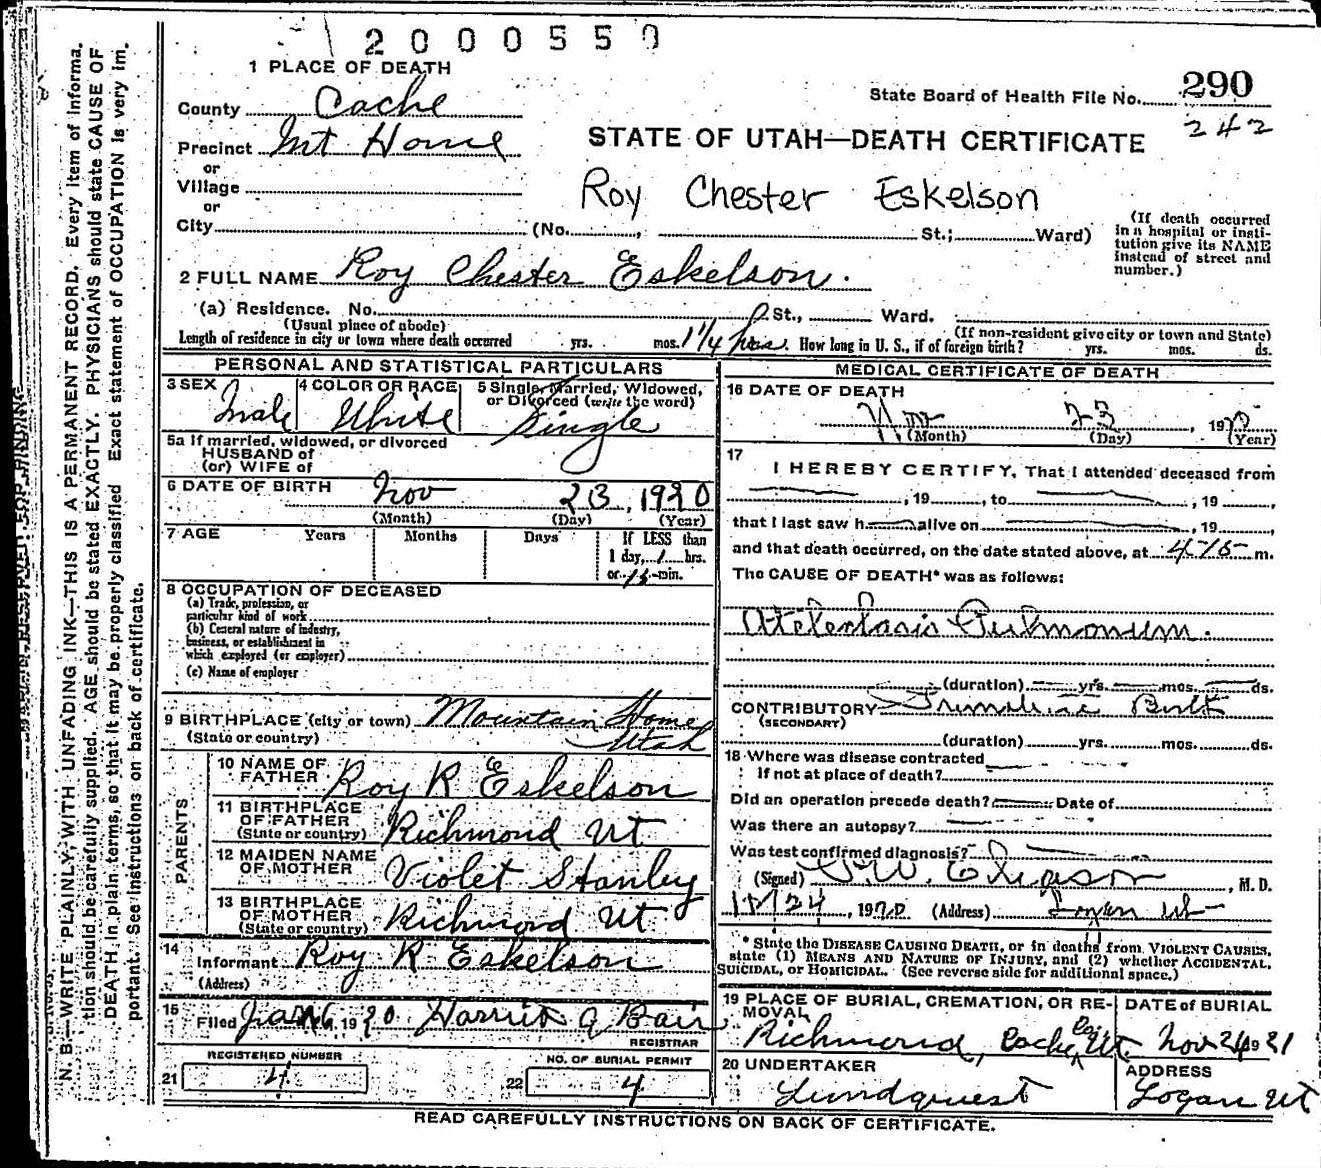 2000550
1 PLACE OF DEATH
State Board of Health File No. 290
242
County Cache
STATE OF UTAH—DEATH CERTIFICATE
Precinct Mt Home
or
Village
Roy Chester Eskelson
or
City (No. , St.; Ward)
(If death occurred in a hospital or insti-
tution give its NAME instead of street and number.)
2 FULL NAME Roy Chester Eskelson.
(a) Residence. No. St., Ward.
(Usual place of abode) (If non-resident give city or town and State)
Length of residence in city or town where death occurred yrs. mos. 1 1/4 hrs. How long in U. S., if of foreign birth? yrs. mos. ds.
PERSONAL AND STATISTICAL PARTICULARS
3 SEX Male
4 COLOR OR RACE White
5 Single, Married, Widowed,
or Divorced (write the word) Single
5a If married, widowed, or divorced
HUSBAND of
(or) WIFE of
6 DATE OF BIRTH Nov 23, 1920
(Month) (Day) (Year)
7 AGE Years Months Days If LESS than
1 day, 1 hrs.
or 15 min.
8 OCCUPATION OF DECEASED
(a) Trade, profession, or
particular kind of work
(b) General nature of industry,
business, or establishment in
which employed (or employer)
(c) Name of employer
9 BIRTHPLACE (city or town) Mountain Home
(State or country) Utah
PARENTS
10 NAME OF
FATHER Roy R Eskelson
11 BIRTHPLACE
OF FATHER
(State or country) Richmond Ut
12 MAIDEN NAME
OF MOTHER Violet Stanley
13 BIRTHPLACE
OF MOTHER
(State or country) Richmond Ut
14
Informant Roy R Eskelson
(Address)
15
Filed Jan 19 20 Harriet A Bair
REGISTRAR
REGISTERED NUMBER
21 4
NO. OF BURIAL PERMIT
22 4
MEDICAL CERTIFICATE OF DEATH
16 DATE OF DEATH
Nov 23, 1920
(Month) (Day) (Year)
17
I HEREBY CERTIFY, That I attended deceased from
, 19 , to , 19
that I last saw h alive on , 19
and that death occurred, on the date stated above, at 4-15 m.
The CAUSE OF DEATH* was as follows:
Atelectasis Pulmonum.
(duration) yrs. mos. ds.
CONTRIBUTORY Premature Birth
(SECONDARY)
(duration) yrs. mos. ds.
18 Where was disease contracted
if not at place of death?
Did an operation precede death? Date of
Was there an autopsy?
Was test confirmed diagnosis?
(Signed) , M. D.
11/24, 1920 (Address) Logan Ut
* State the DISEASE CAUSING DEATH, or in deaths from VIOLENT CAUSES,
state (1) MEANS AND NATURE OF INJURY, and (2) whether ACCIDENTAL,
SUICIDAL, or HOMICIDAL. (See reverse side for additional space.)
19 PLACE OF BURIAL, CREMATION, OR RE-
MOVAL
Richmond, Cache Co. Ut.
DATE of BURIAL
Nov 24 1921
20 UNDERTAKER
Lundquest
ADDRESS
Logan Ut
READ CAREFULLY INSTRUCTIONS ON BACK OF CERTIFICATE.
N. B—WRITE PLAINLY, WITH UNFADING INK—THIS IS A PERMANENT RECORD. Every item of informa-
tion should be carefully supplied. AGE should be stated EXACTLY. PHYSICIANS should state CAUSE OF
DEATH in plain terms, so that it may be properly classified Exact statement of OCCUPATION is very im-
portant. See instructions on back of certificate.